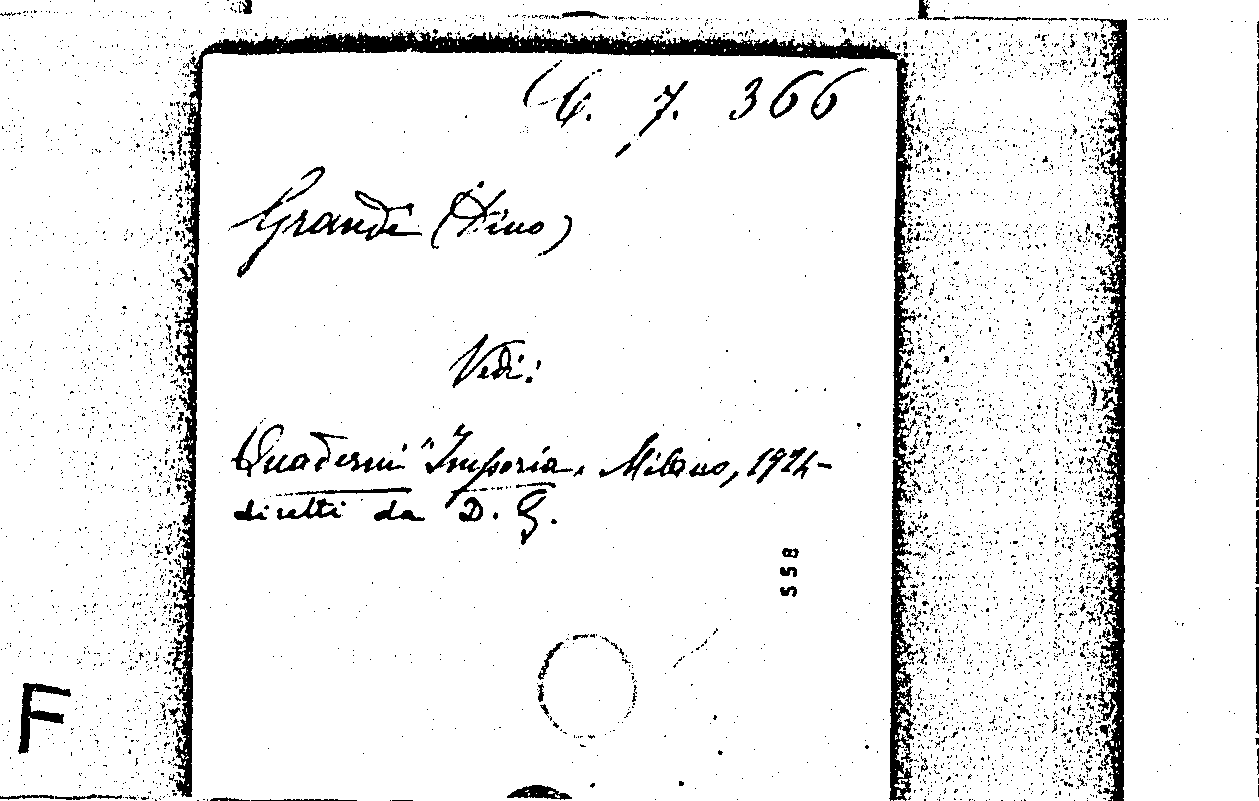 6. 7. 366
Grandi (Dino)
Vedi:
Quaderni "Imperia, Milano, 1924-
diretti da D. G.
558
F